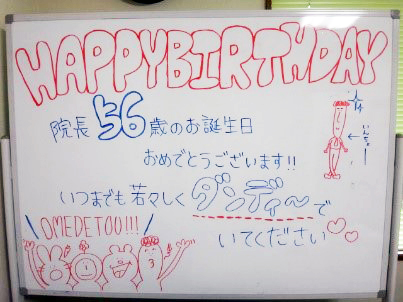 HAPPYBIRTHDAY
院長56歳のお誕生日
おめでとうございます!!
いつまでも若々しく
ダンディ〜で
いてください
OMEDETOU!!!